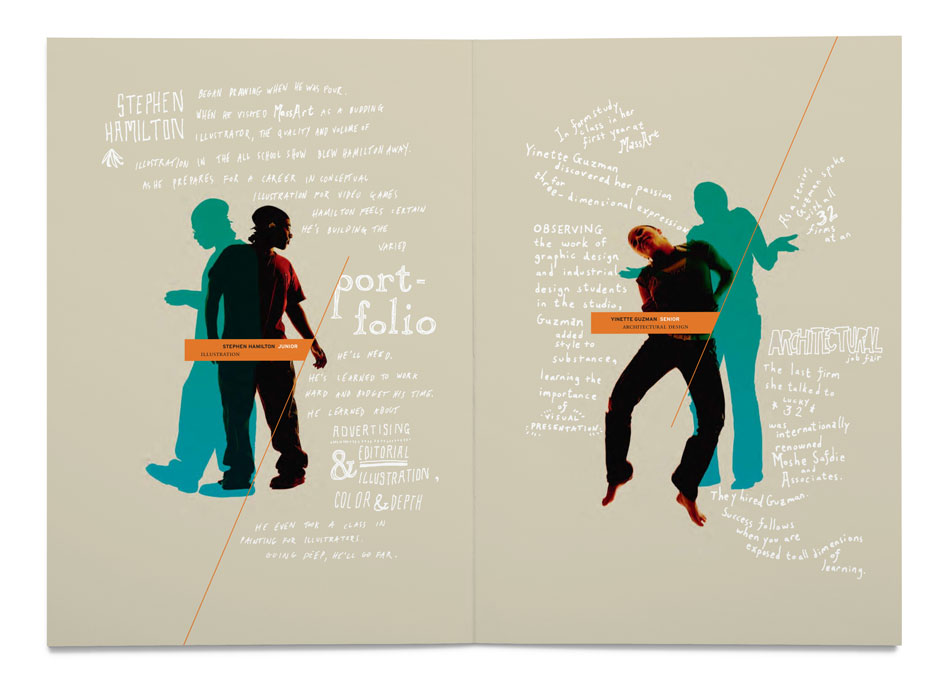 STEPHEN
HAMILTON
BEGAN DRAWING WHEN HE WAS FOUR.
WHEN HE VISITED MassArt AS A BUDDING
ILLUSTRATOR, THE QUALITY AND VOLUME OF
ILLUSTRATION IN THE ALL SCHOOL SHOW BLEW HAMILTON AWAY.
AS HE PREPARES FOR A CAREER IN CONCEPTUAL
ILLUSTRATION FOR VIDEO GAMES
HAMILTON FEELS CERTAIN
HE'S BUILDING THE
VARIED
port-
folio
STEPHEN HAMILTON JUNIOR
ILLUSTRATION
HE'LL NEED.
HE'S LEARNED TO WORK
HARD AND BUDGET HIS TIME.
HE LEARNED ABOUT
ADVERTISING
& EDITORIAL
ILLUSTRATION,
COLOR & DEPTH
HE EVEN TOOK A CLASS IN
PAINTING FOR ILLUSTRATORS.
GOING DEEP, HE'LL GO FAR.
In form study
class in her
first year at
MassArt
Yinette Guzman
discovered her passion
for
three-dimensional expression
OBSERVING
the work of
graphic design
and industrial
design students
in the studio,
Guzman
added
style to
substance,
learning the
importance
of
VISUAL
PRESENTATION.
YINETTE GUZMAN SENIOR
ARCHITECTURAL DESIGN
As a senior,
Guzman spoke
with all
32
firms
at an
ARCHITECTURAL
job fair
The last firm
she talked to
* LUCKY *
32
was
internationally
renowned
Moshe Safdie
and
Associates.
They hired Guzman.
Success follows
when you are
exposed to all dimensions
of
learning.